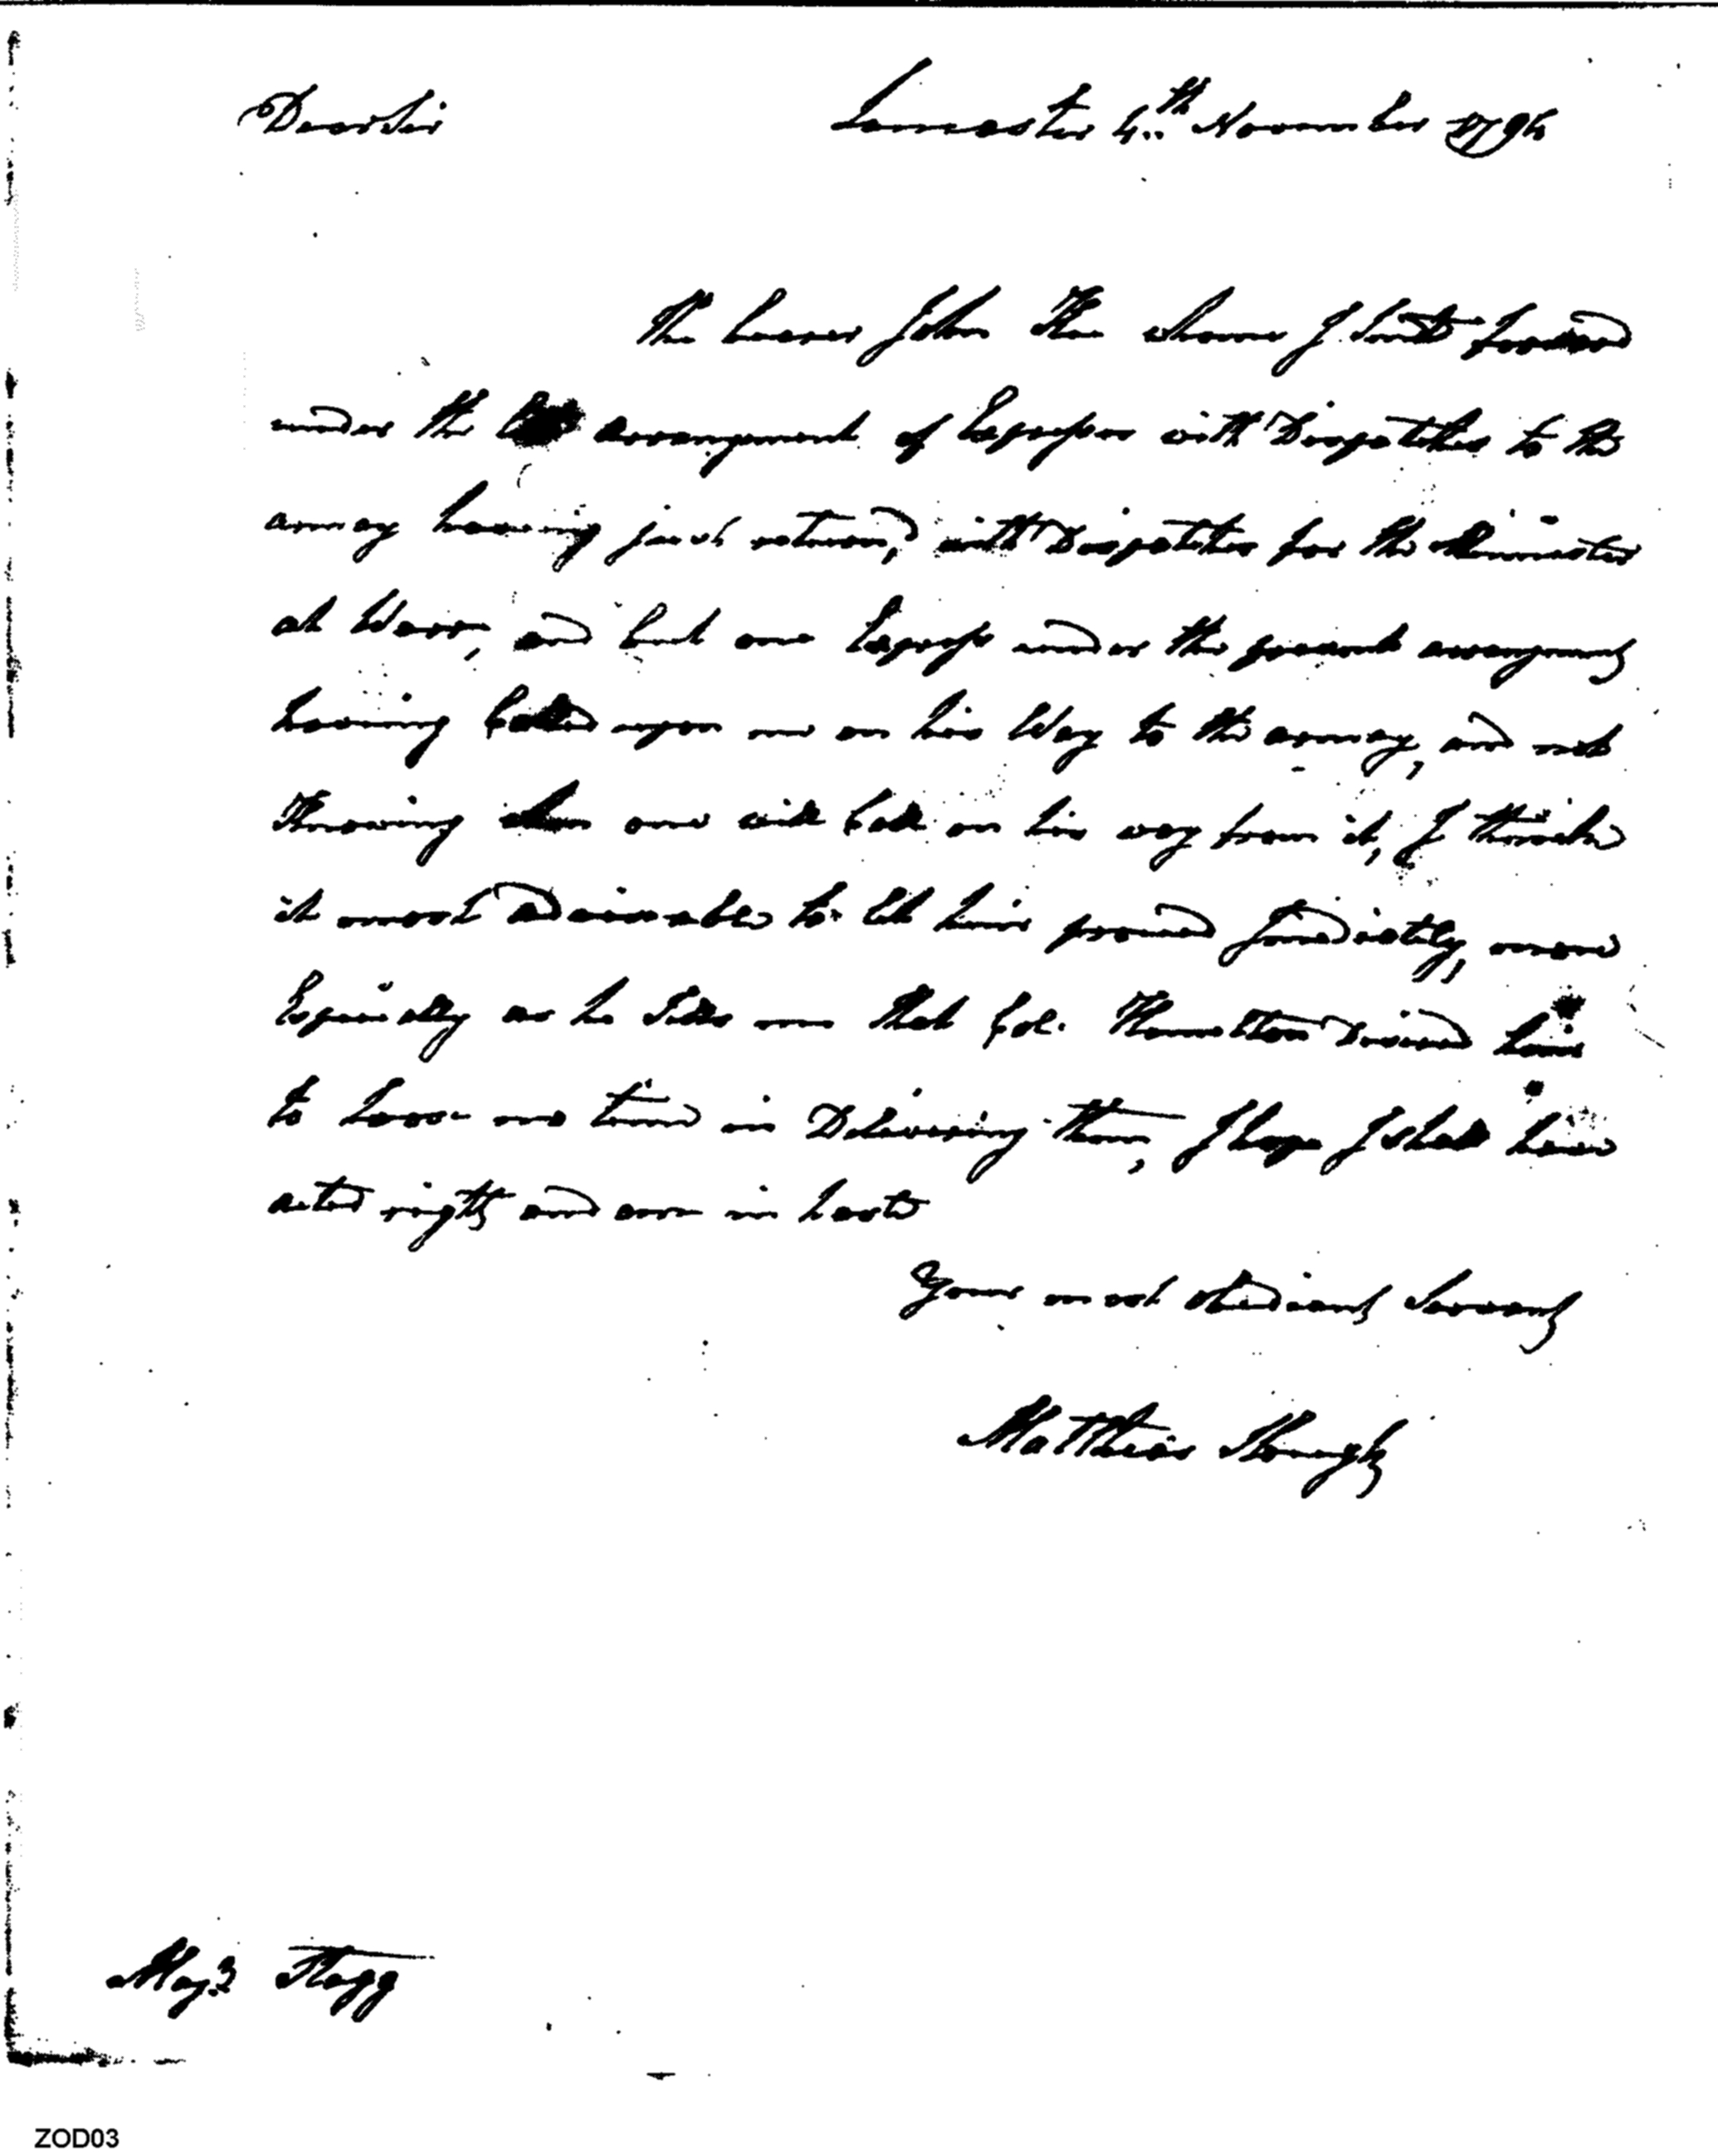 Dear Sir Lancaster 4..th November 1794
The bearer John the whome I last forwarded
under the arrangement of Expresses with Dispatches to the
army having just returned with Dispatches for the Minister
at Warr, and but one Express under the present arrangement
having Called upon me on his Way to the army, and not
Knowing when one will Call on his way from it, I think
it most Adviseable to let him proceed Imediately, more
Especially as he tells me that Col. Hamilton desired him
to loose no time in Delivering them, I hope I shall have
acted right and am in haste
Your most obedient Servant
Matthias Slough
Majr Stagg
ZOD03